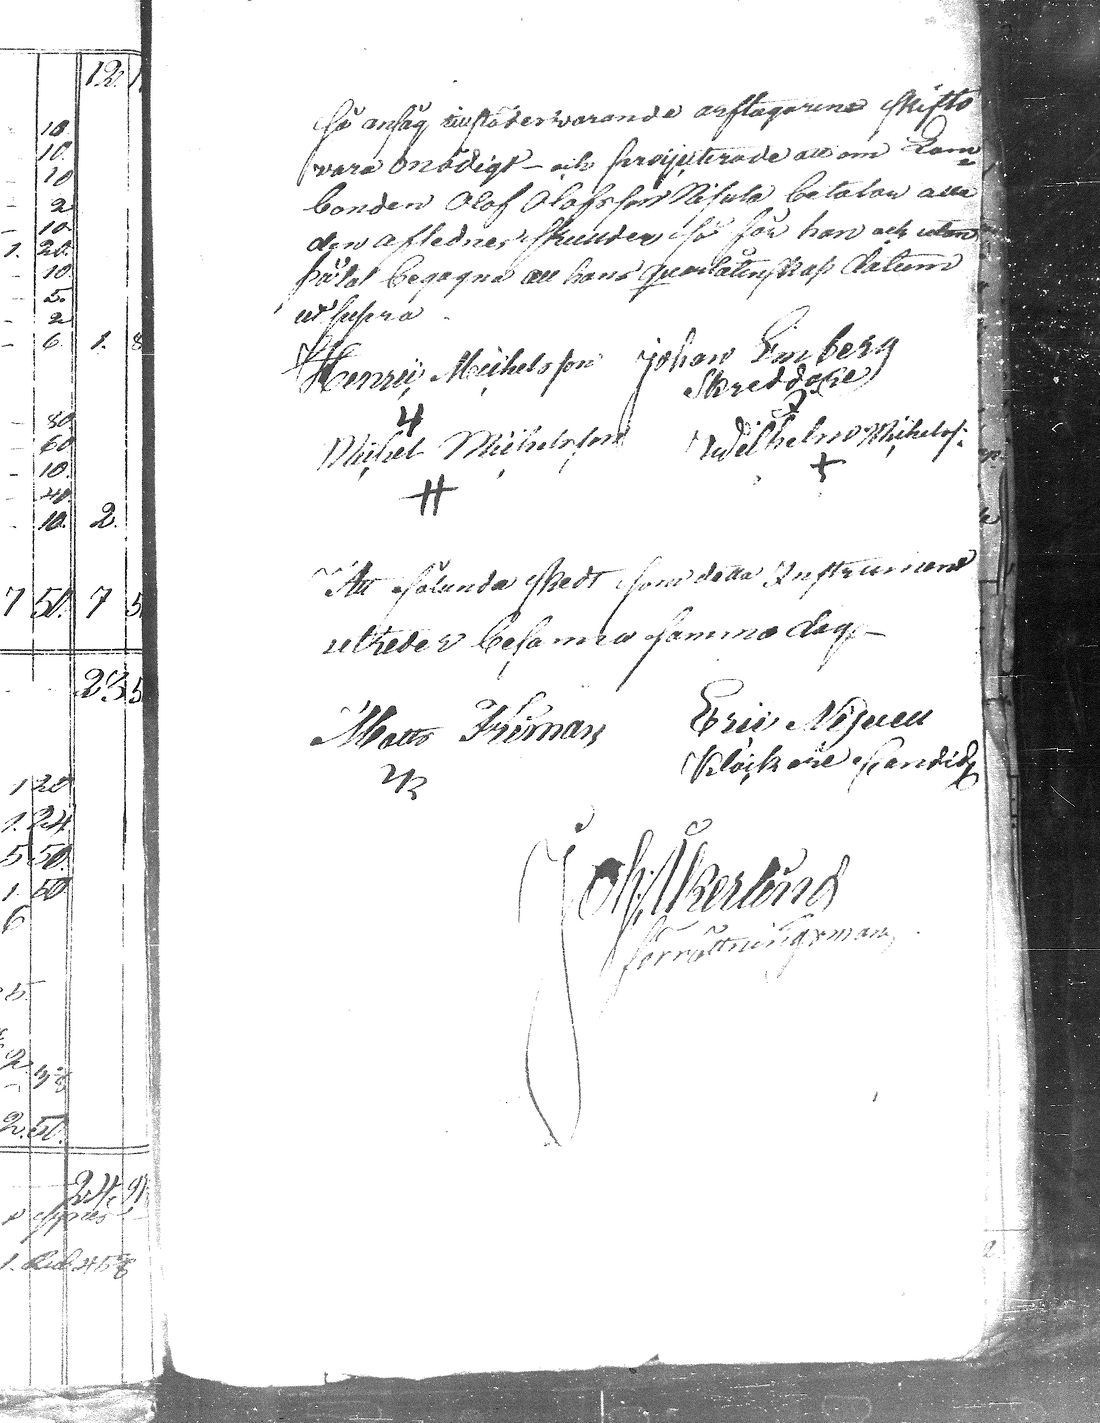 12.
10.
10.
10
2
10.
1. 20.
10.
5.
2
6. 1. 8
80
60
10.
40
10. 2.
7 50. 7 5
23 5
1 20
1. 24
5 50.
1. 50
6
2. 50.
24. 91
så ansåg tillstädesvarande arftagarena skifte
vara onödigt – och projecterade att om Lam=
bonden Olof Olofsson Nisula betalar alla
den aflednes skulder så får han ock utan
påtal begagna all hans qvarlåtenskap datum
ut supra
Henric Michelsson Johan Enberg
Skreddare
Michel Michelsson Wilhelm Michelss:
Att sålunda skedt som detta Instrument
utreder besanna samma dag –
Matts Friman Eric Nigrell
Klockare Candid
Joh: Åkerlund
förrättningsman.